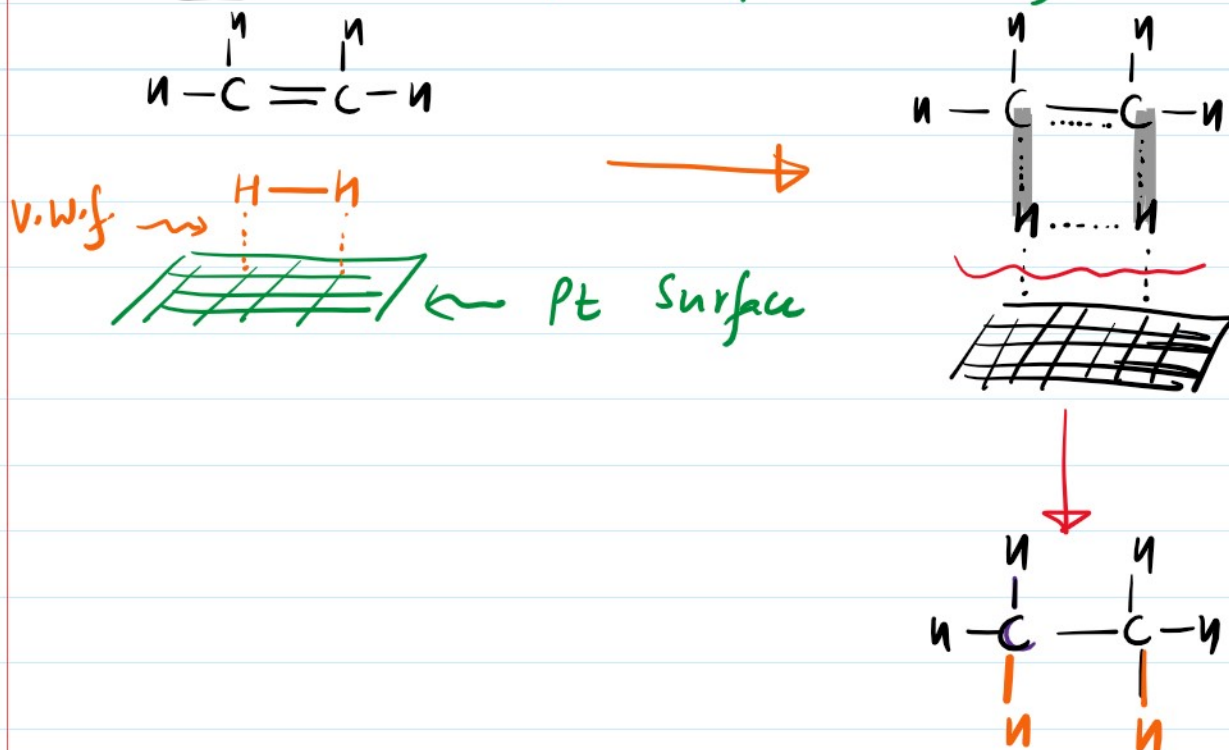 H H
H – C = C – H
H — H
V.W.f.
Pt Surface
H H
H – C — C – H
H ..... H
H H
H – C — C – H
H H